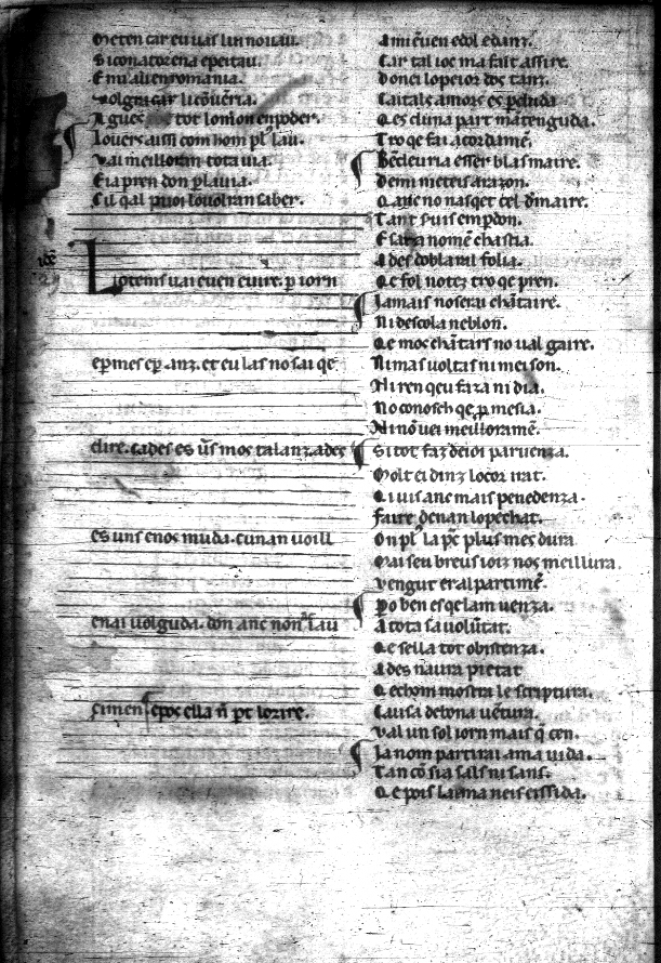 Meten car eu uas lin no uau.
Si con a torena e peitau.
E nulalien romania.
Volgra car li couẽria.
Agues tot lo mon en poder.
Jouers aissi com hom pl' lau.
Vai meilloran tota uia.
E ia pren don p lauia.
Cil qal puoi lo uolran saber.
idẽ
Lo tems uai euen euire. p iorn
ep mes ep anz. et eu las no sai qe
dire. cades es ũs mos talanz. ades
es uns enos muda. cunan uoill
enai uolguda. don anc non' iau
simen epos ella ñ pt lo rire.
A mi ẽuen e dol e danz.
Car tal ioc ma fait assire.
Don ei lo peior dos tanz.
Caitals amors es pduda
Qes duna part mantenguda.
Tro qe fai acordamẽ.
Bẽ deuria esser blasmaire.
De mi meteis a razon.
Qanc no nasqet cel dmaire.
Tant seruis em pdon.
E sara nomẽ chastia.
Ades doblaral folia.
Qe fol notez tro qe pren.
Jamais no serai chãtaire.
Ni descola neblon.
Qe mos chãtars no ual gaire.
Ni mas uoltas ni mei son.
Ni ren qeu faza ni dia.
No conosch qe p mesia.
Ni nõ uei meilloramẽ.
Si tot faz de ioi paruenza.
Molt ei dinz lo cor irat.
Qi uis anc mais penedenza.
Faire denan lo pechat.
On pl' la pc plus mes dura
Mai seu breus iorz nos meillura.
Vengut er al partimẽ.
Po ben es qelam uenza.
A tota sa uolũtat.
Qe sella tot obistenza.
Ades naura pietat
Qe chom mostra le scriptura.
Causa de bona uẽtura.
Val un sol iorn mais q cen.
Ja nom partirai a ma uida.
Tan cõ sia sals ni sans.
Qe pois larma neis eissida.